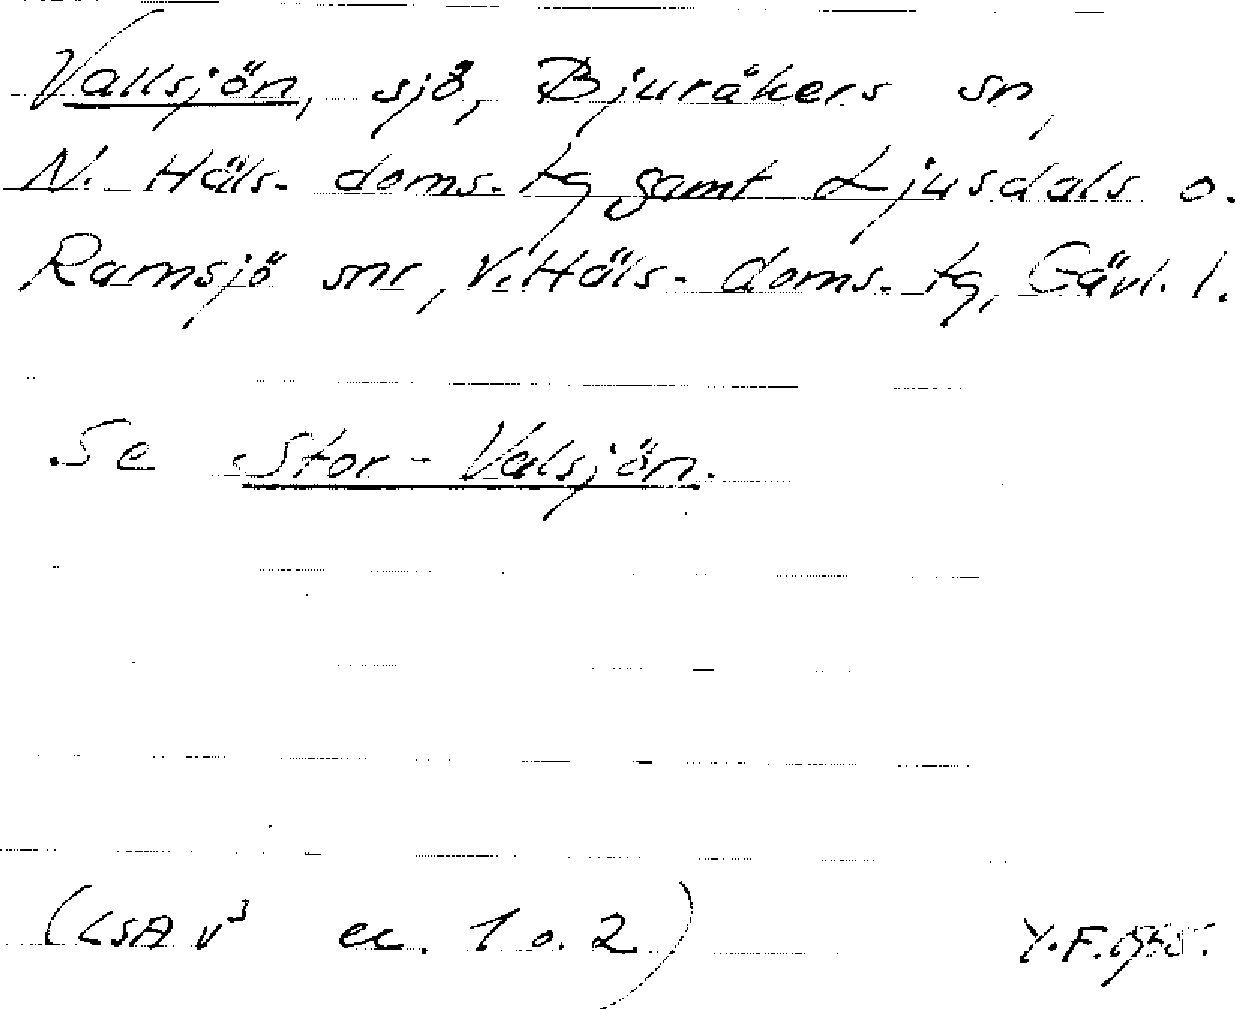 Vallsjön, sjö, Bjuråkers sn,
N. Häls. doms. tg samt Ljusdals o.
Ramsjö snr, V. Häls. doms. tg, Gävl. l.
Se Stor-Valsjön.
(LSA v³ ec. 1 o. 2) Y.F.